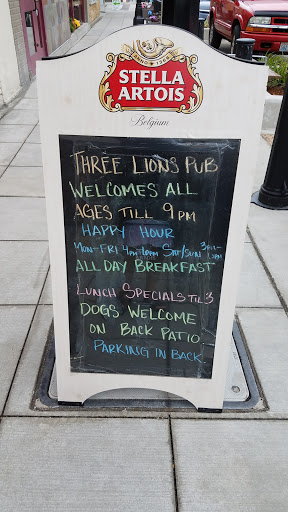 STELLA
ARTOIS
Belgium
THREE LIONS PUB
WELCOMES ALL
AGES TILL 9PM
HAPPY HOUR
MON-FRI 4PM-6PM SAT/SUN
ALL DAY BREAKFAST
LUNCH SPECIALS TIL 3
DOGS WELCOME
ON BACK PATIO
PARKING IN BACK